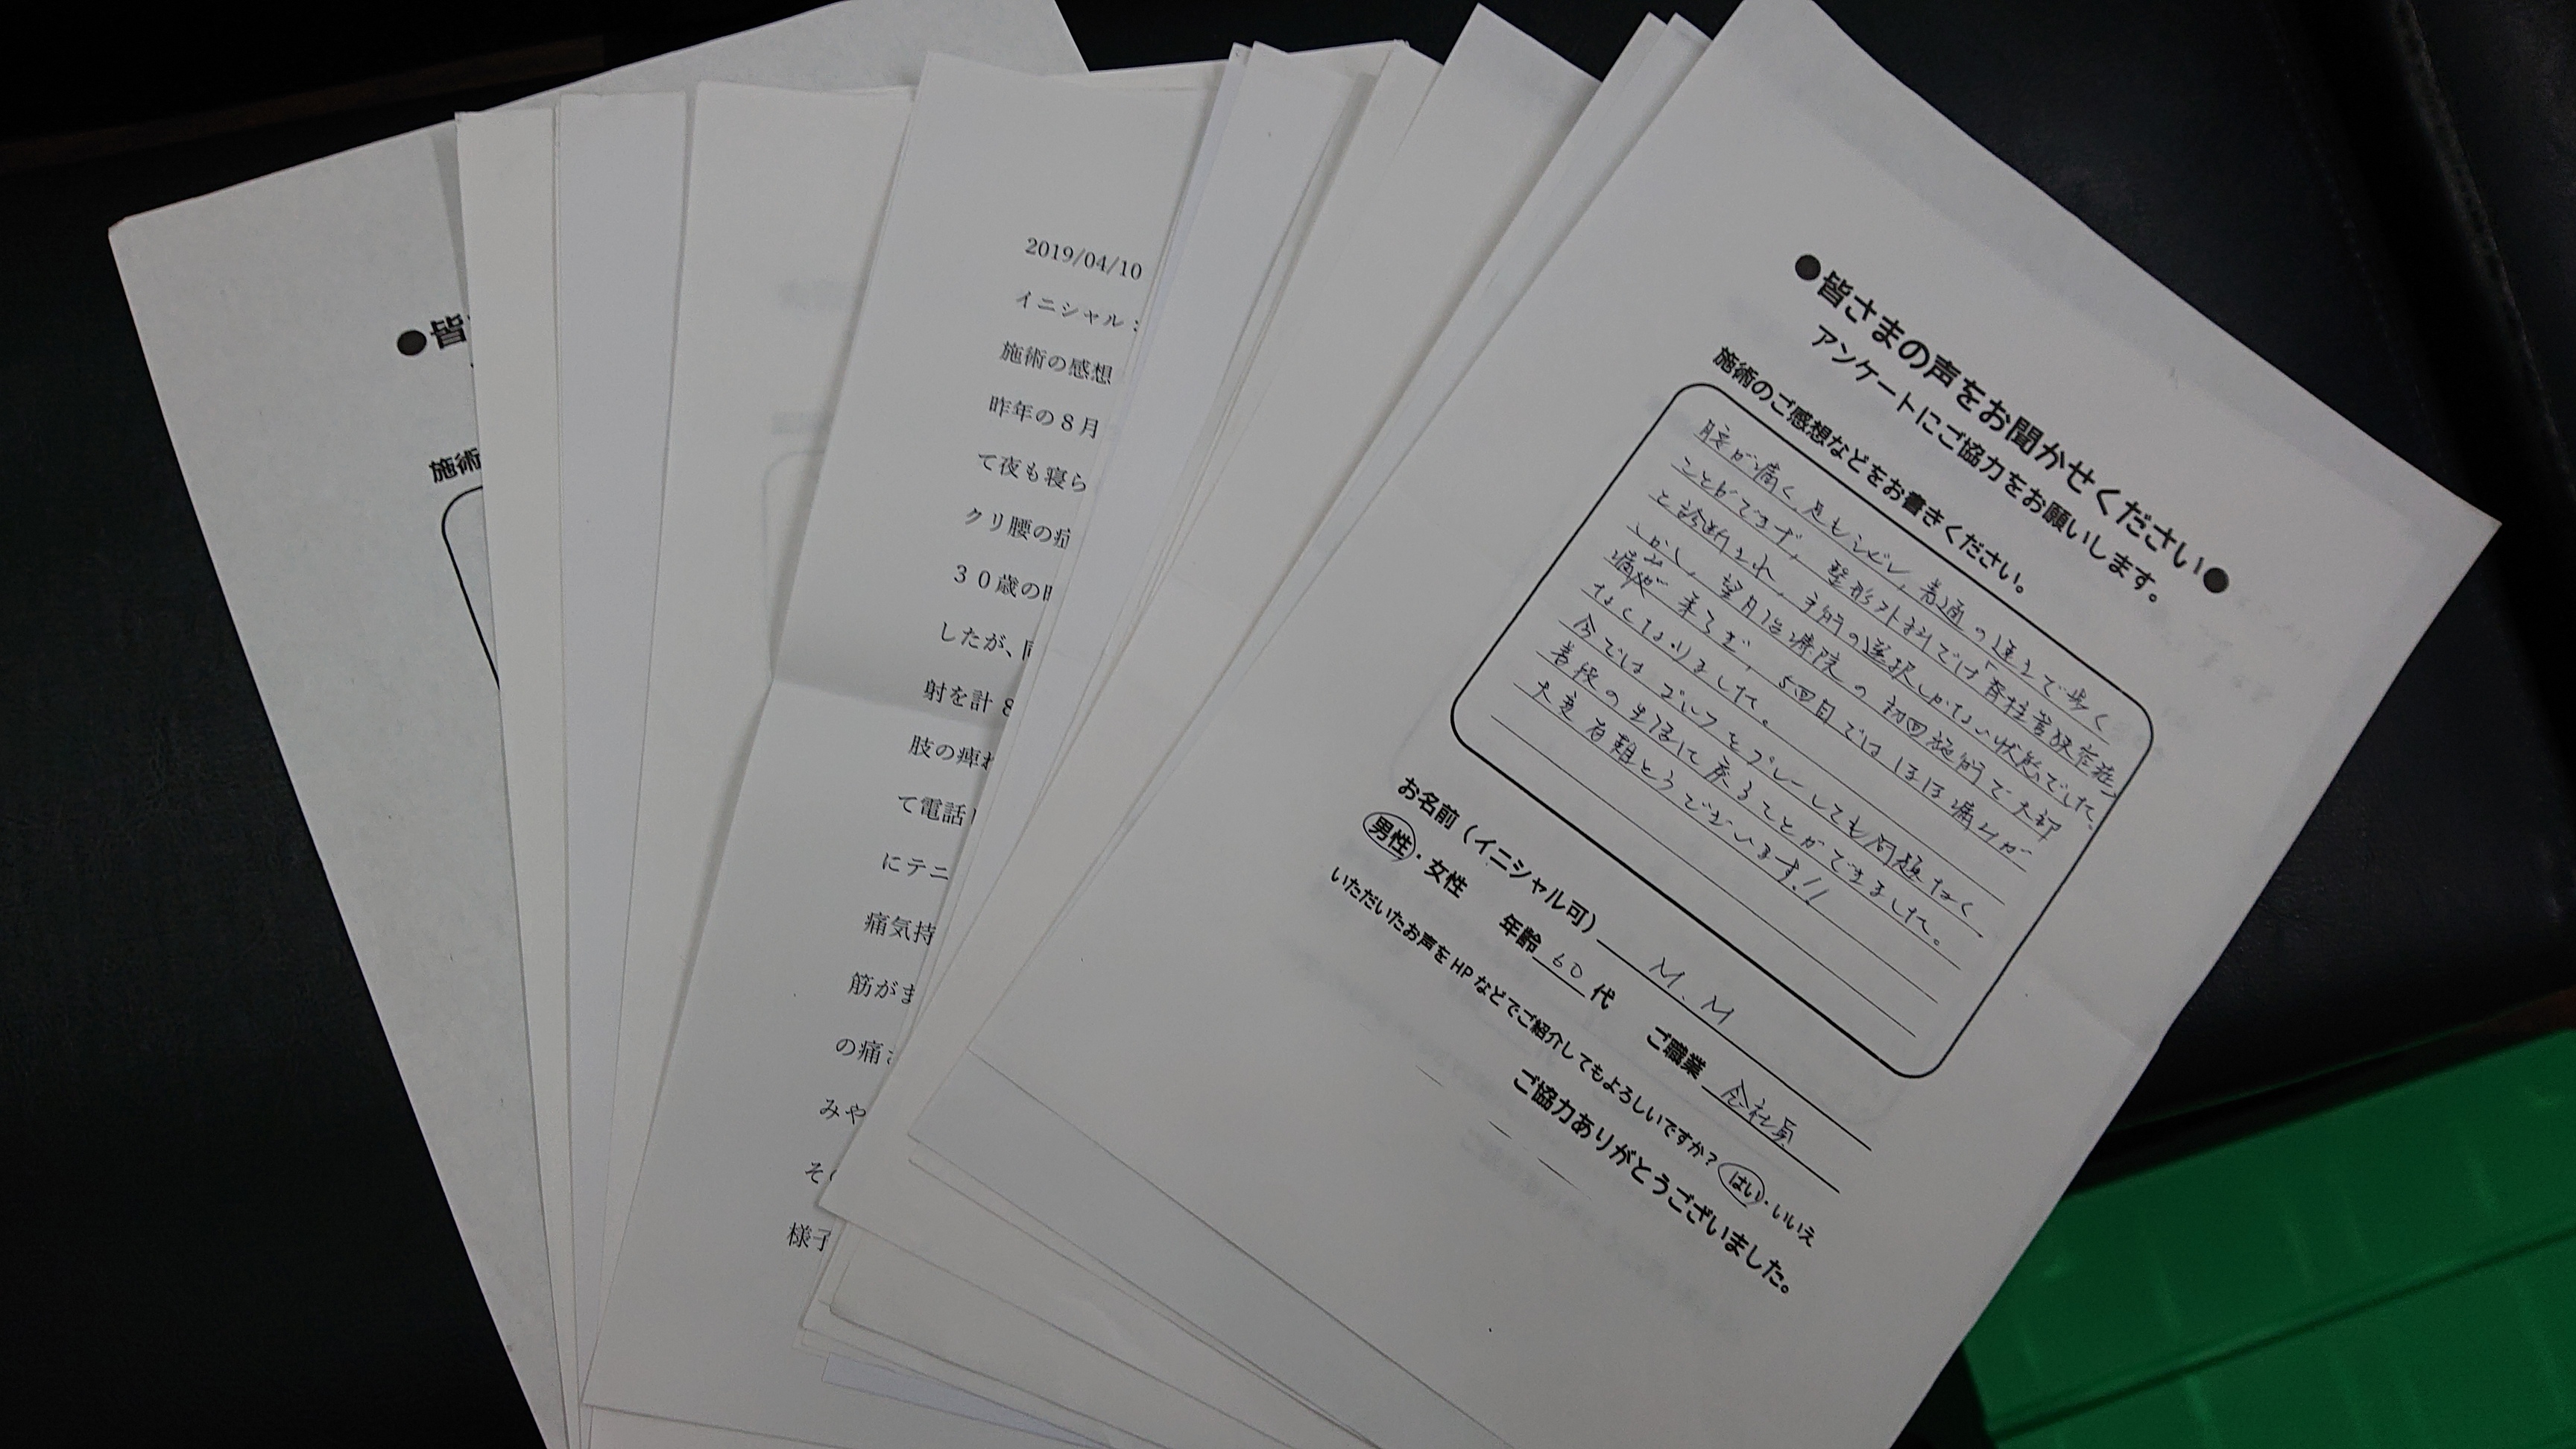 ●皆
施術
2019/04/10
イニシャル
施術の感想
昨年の8月
て夜も寝ら
クリ腰の症
30歳の時
したが、同
射を計8
肢の痺れ
て電話
にテニ
痛気持
筋がま
の痛さ
みや
そ
様子
●皆さまの声をお聞かせください●
アンケートにご協力をお願いします。
施術のご感想などをお書きください。
腰が痛く、足もシビレ、普通の速さで歩く
ことができず、整形外科では「脊柱管狭窄症」
と診断され、手術の選択しかない状態でした。
しかし、望月治療院の初回施術で大部
痛みが柔らぎ、5回目ではほぼ痛みが
なくなりました。
今ではゴルフをプレーしても問題なく
普段の生活に戻ることができました。
大変有難とうございます!!
お名前（イニシャル可） M.M
男性・女性 年齢 60 代 ご職業 会社員
いただいたお声をHPなどでご紹介してもよろしいですか？ はい・いいえ
ご協力ありがとうございました。